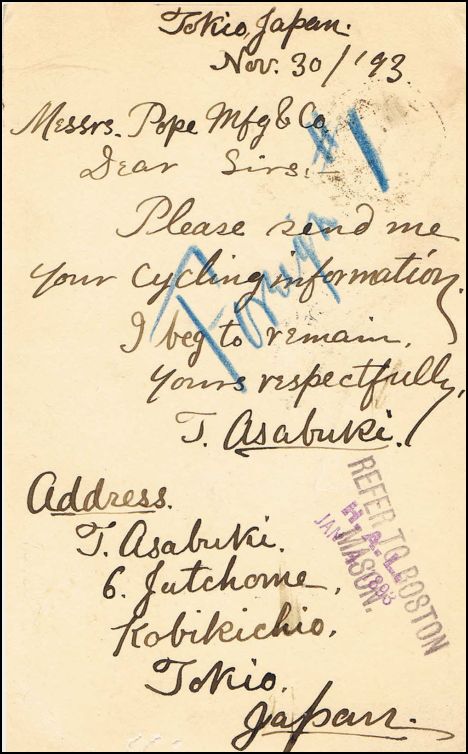 Tokio, Japan.
Nov. 30/'93.
Messrs. Pope Mfg & Co.
Dear Sirs:—
Please send me
your cycling information.
I beg to remain,
Yours respectfully,
T. Asabuki.
Foreign #1
Address.
T. Asabuki.
6. Jutchome,
Kobikichio,
Tokio,
Japan.
REFER TO BOSTON
H. A. L.
JAN
1893
MASON.